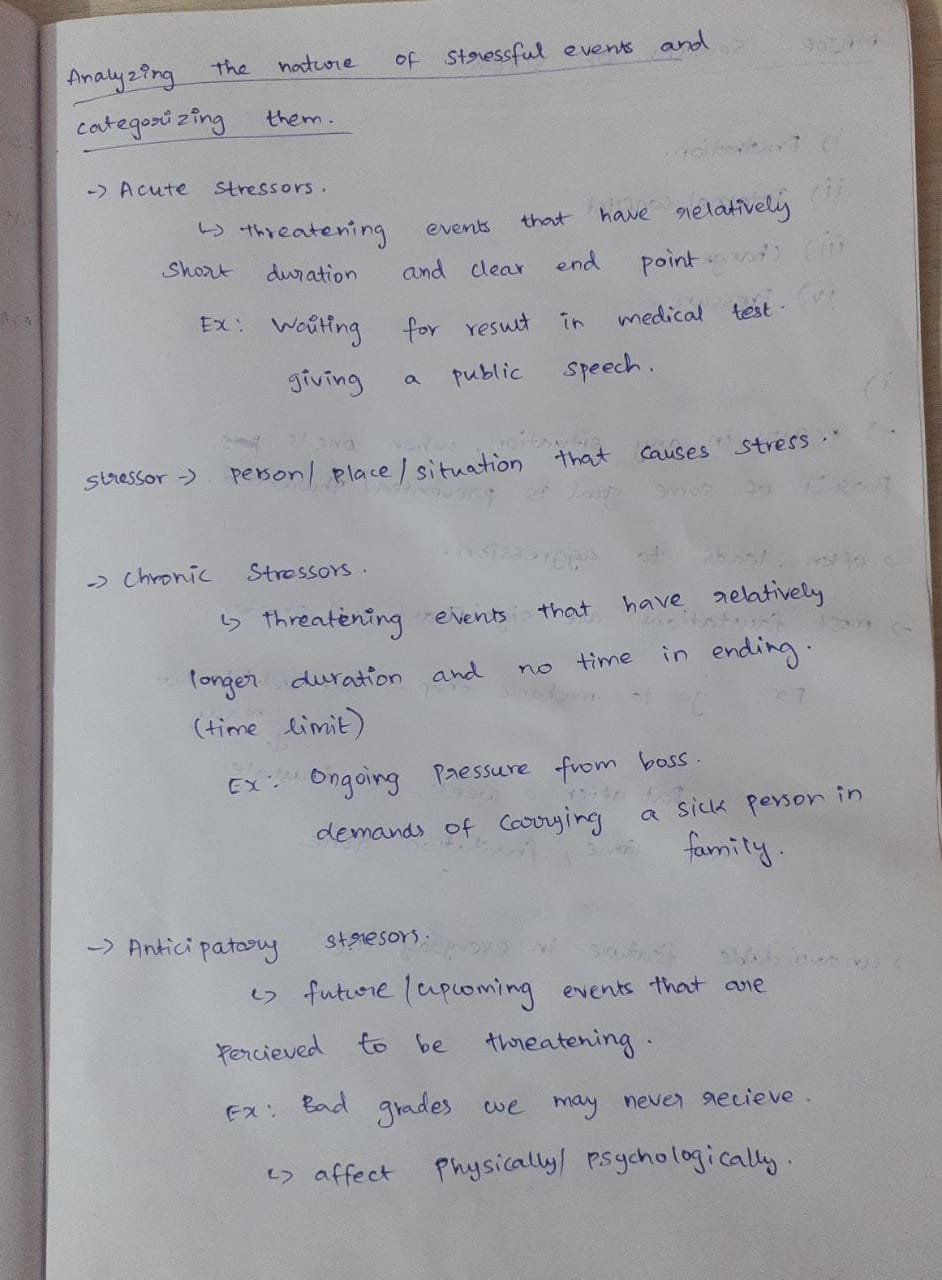 Analyzing the nature of stressful events and
categorizing them.
-> Acute stressors.
↳ threatening events that have relatively
short duration and clear end point.
Ex: Waiting for result in medical test.
giving a public speech.
stressor -> person/ place / situation that causes stress.
-> Chronic Stressors.
↳ threatening events that have relatively
longer duration and no time in ending.
(time limit)
Ex: Ongoing Pressure from boss.
demands of carrying a sick person in
family.
-> Anticipatory stresors.
↳ future / upcoming events that are
Percieved to be threatening.
Ex: Bad grades we may never recieve.
↳ affect Physically/ psychologically.